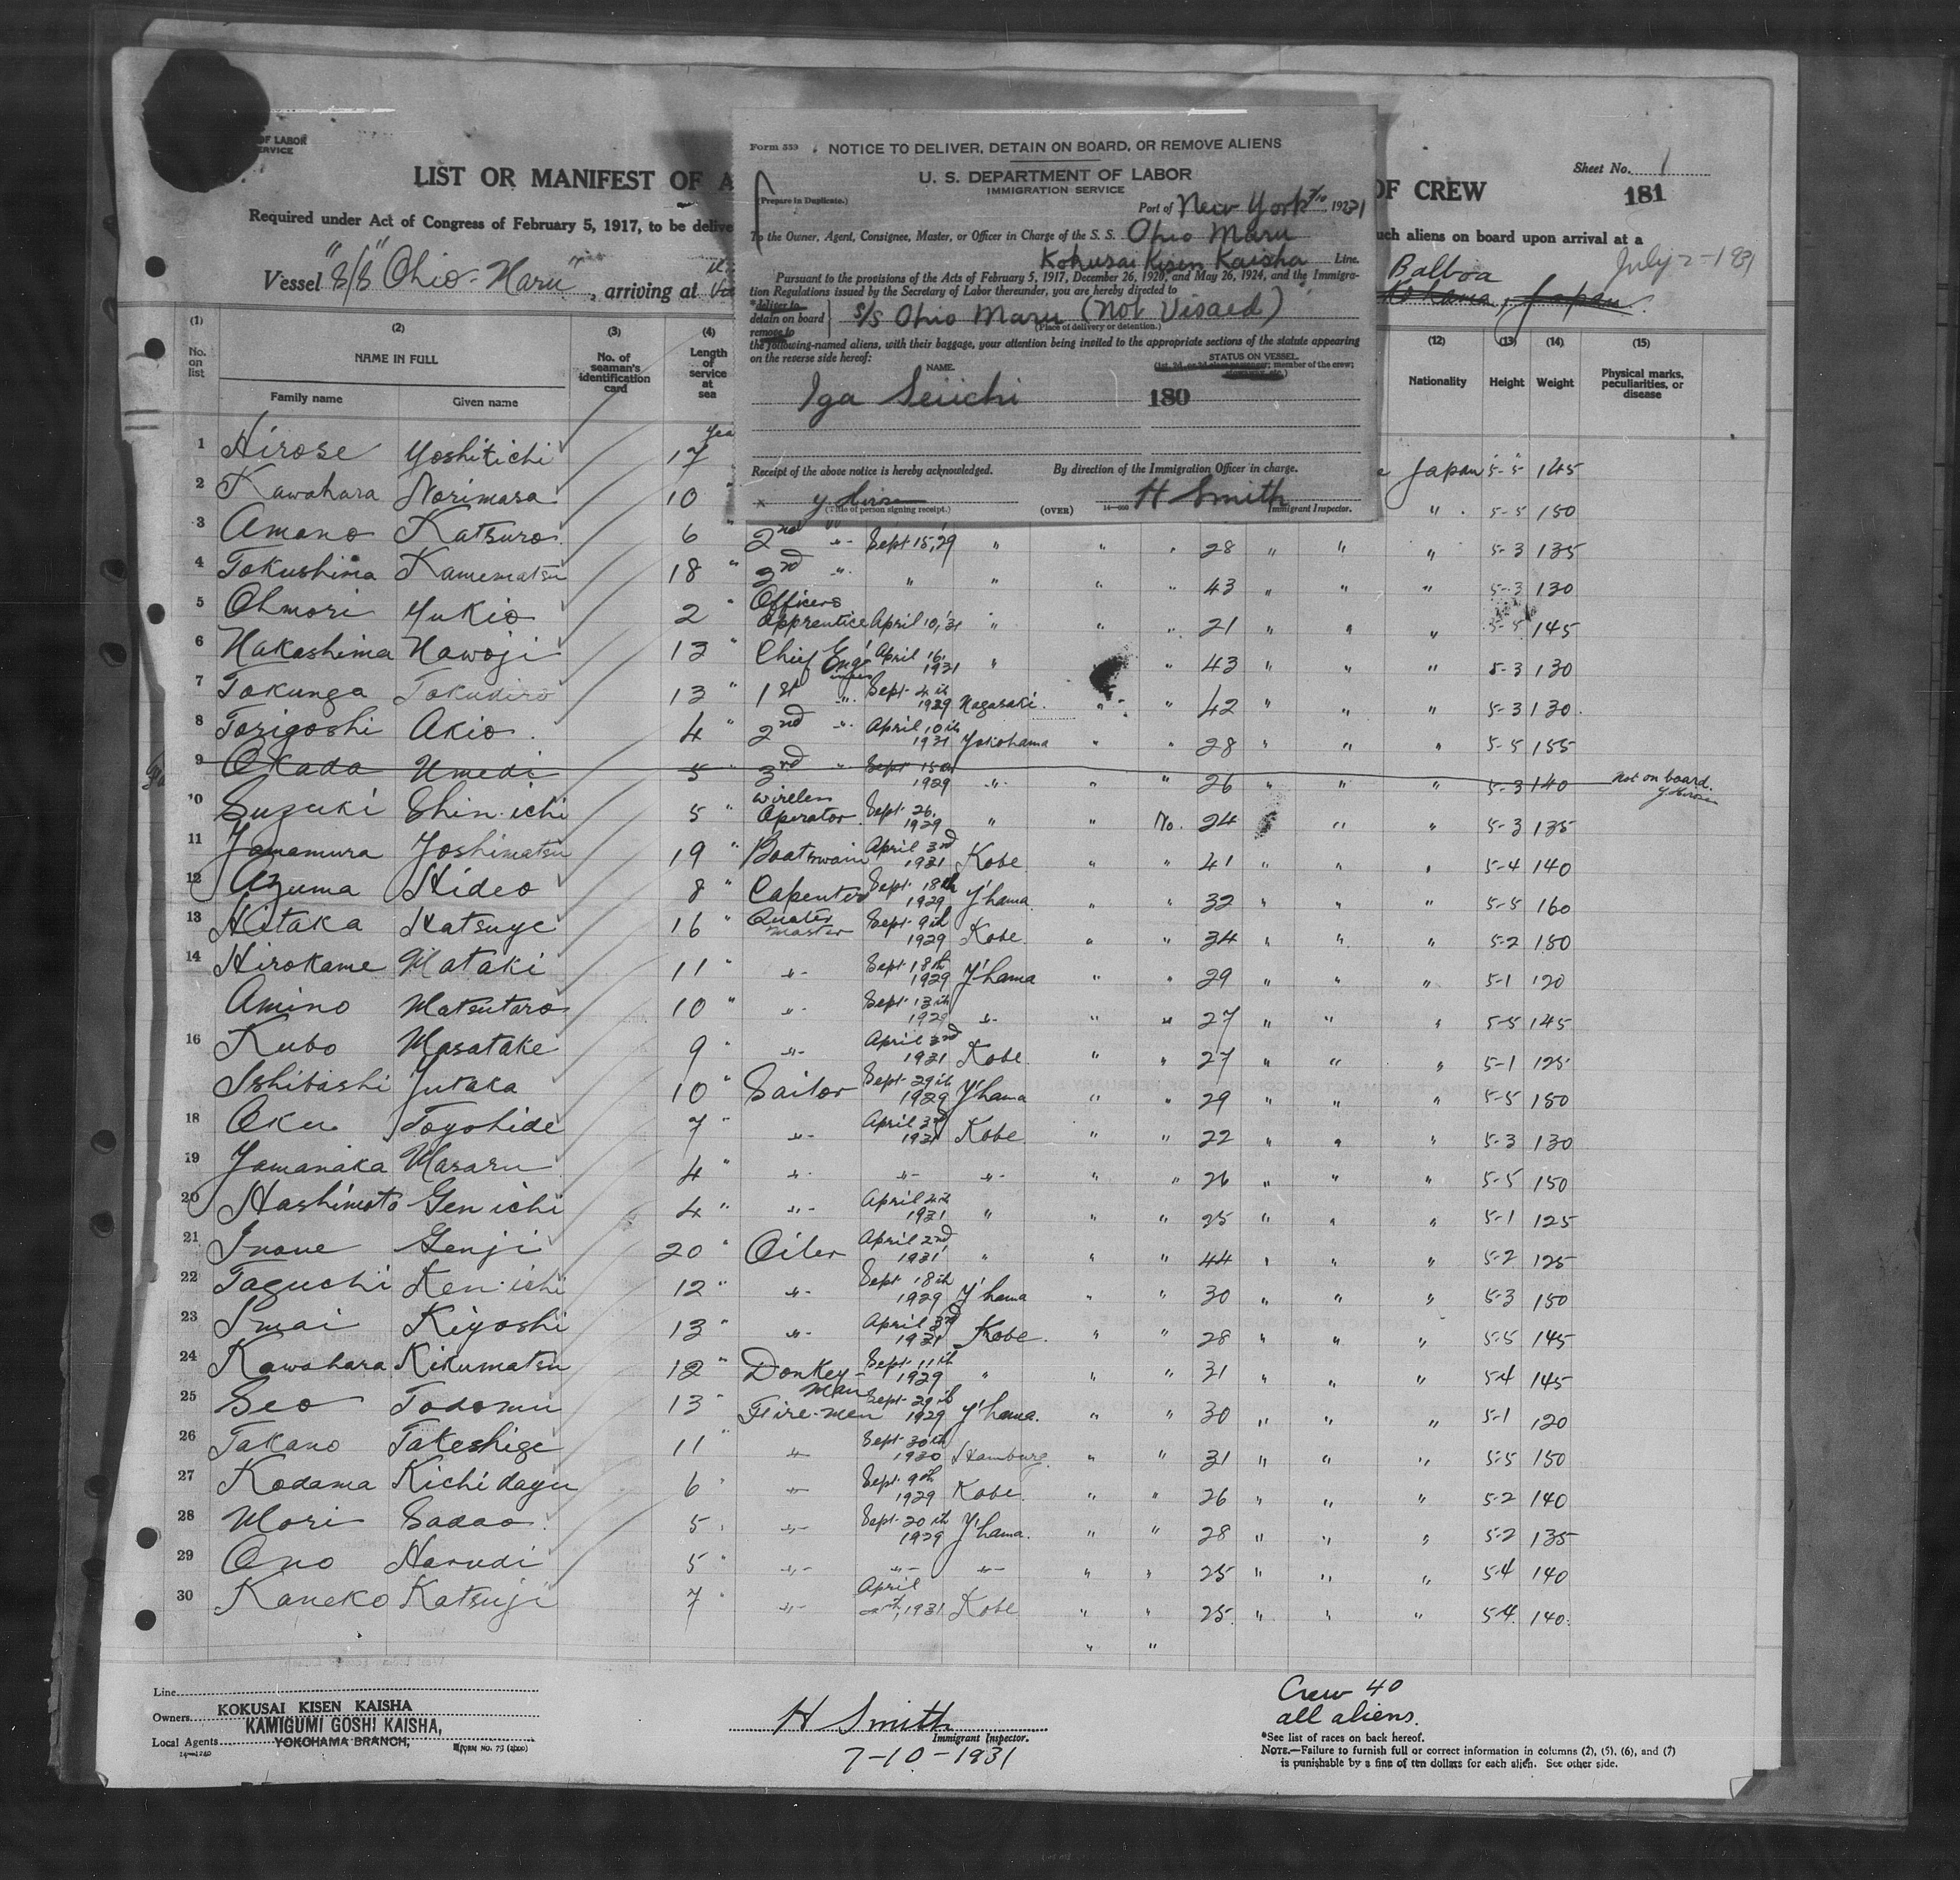 OF LABOR
ERVICE
LIST OR MANIFEST OF A
OF CREW
Sheet No. 1
181
Required under Act of Congress of February 5, 1917, to be delive
uch aliens on board upon arrival at a
Vessel "S/S "Ohio-Maru", arriving at
Balboa July 2-1931
Yokohama, Japan.
Form 559
NOTICE TO DELIVER, DETAIN ON BOARD, OR REMOVE ALIENS
U. S. DEPARTMENT OF LABOR
IMMIGRATION SERVICE
(Prepare in Duplicate.)
Port of New York 7/10 1931
To the Owner, Agent, Consignee, Master, or Officer in Charge of the S. S. Ohio Maru
Kokusai Kisen Kaisha Line.
Pursuant to the provisions of the Acts of February 5, 1917, December 26, 1920, and May 26, 1924, and the Immigra-
tion Regulations issued by the Secretary of Labor thereunder, you are hereby directed to
*deliver to
detain on board
remove to
S/S Ohio Maru (Not Visaed)
(Place of delivery or detention.)
the following-named aliens, with their baggage, your attention being invited to the appropriate sections of the statute appearing
on the reverse side hereof:
NAME.
STATUS ON VESSEL.
member of the crew;
Iga Seiichi
180
Receipt of the above notice is hereby acknowledged.
By direction of the Immigration Officer in charge.
x Y Hirose
H Smith
(Title of person signing receipt.)
(OVER)
Immigrant Inspector.
(1) (2) (3) (4) (12) (13) (14) (15)
No. on list
NAME IN FULL
Family name
Given name
No. of seaman's identification card
Length of service at sea
Nationality
Height
Weight
Physical marks, peculiarities, or disease
1 Hirose Yoshitichi 17 Japan 5-5 145
2 Kawahara Norimasa 10 " " 5-5 150
3 Amano Katsuro 6 " 2nd " Sept 15, 29 " " " 28 " " " 5-3 135
4 Tokushima Kamematsu 18 " 3rd " " " " " 43 " " " 5-3 130
5 Ohmori Yukio 2 " Officers Apprentice April 10, 31 " " " 21 " " " 5-5 145
6 Nakashima Nawoji 13 " Chief Engineer April 16, 1931 " " 43 " " " 5-3 130
7 Tokunga Tokudiro 13 " 1st " Sept 4th 1929 Nagasaki " " 42 " " " 5-3 130
8 Torigoshi Akio 4 " 2nd " April 10th 1931 Yokohama " " 28 " " " 5-5 155
9 Okada Umedi 5 " 3rd " Sept 15th 1929 " " " 26 " " " 5-3 140 Not on board. Y Hirose
10 Suzuki Shin-ichi 5 " Wireless Operator Sept 26, 1929 " " No. 24 " " 5-3 135
11 Yamamura Yoshimatsu 19 " Boatswain April 3rd 1931 Kobe " " 41 " " " 5-4 140
12 Azuma Hideo 8 " Capenter Sept 18th 1929 Y'hama " " 32 " " " 5-5 160
13 Hitaka Katsuye 16 " Quater master Sept 9th 1929 Kobe " " 34 " " " 5-2 180
14 Hirokame Mataki 11 " " Sept 18th 1929 Y'hama " " 29 " " " 5-1 120
Amino Matsutaro 10 " " Sept 13th 1929 " " " 27 " " " 5-5 145
16 Kubo Masatake 9 " " April 3rd 1931 Kobe " " 27 " " " 5-1 125
Ishibashi Yutaka 10 " Sailor Sept 29th 1929 Y'hama " " 29 " " " 5-5 150
18 Oku Toyohide 7 " " April 3rd 1931 Kobe " " 22 " " " 5-3 130
19 Yamanaka Masaru 4 " " " " " " 26 " " " 5-5 150
20 Hashimoto Genichi 4 " " April 1931 " " " 25 " " " 5-1 125
21 Inoue Genji 20 " Oiler April 2nd 1931 " " " 44 " " " 5-2 125
22 Taguchi Ken-ichi 12 " " Sept 18th 1929 Y'hama " " 30 " " " 5-3 150
23 Imai Kiyoshi 13 " " April 3rd 1931 Kobe " " 28 " " " 5-5 145
24 Kawahara Kikumatsu 12 " Donkey-man Sept 11th 1929 " " " 31 " " " 5-4 145
25 Seo Todomu 13 " Fire-men Sept 29th 1929 Y'hama " " 30 " " " 5-1 120
26 Takano Takeshige 11 " " Sept 30th 1930 Hamburg " " 31 " " " 5-5 150
27 Kodama Kichidayu 6 " " Sept 9th 1929 Kobe " " 26 " " " 5-2 140
28 Mori Sadao 5 " " Sept 20th 1929 Y'hama " " 28 " " " 5-2 135
29 Ono Harudi 5 " " " " " " 25 " " " 5-4 140
30 Kaneko Katsuji 7 " " April 1931 Kobe " " 25 " " " 5-4 140
" "
Line
Owners KOKUSAI KISEN KAISHA
KAMIGUMI GOSHI KAISHA,
Local Agents YOKOHAMA BRANCH,
14—1240
H Smith
Immigrant Inspector.
7-10-1931
Crew 40
all aliens.
*See list of races on back hereof.
NOTE.—Failure to furnish full or correct information in columns (2), (5), (6), and (7)
is punishable by a fine of ten dollars for each alien. See other side.